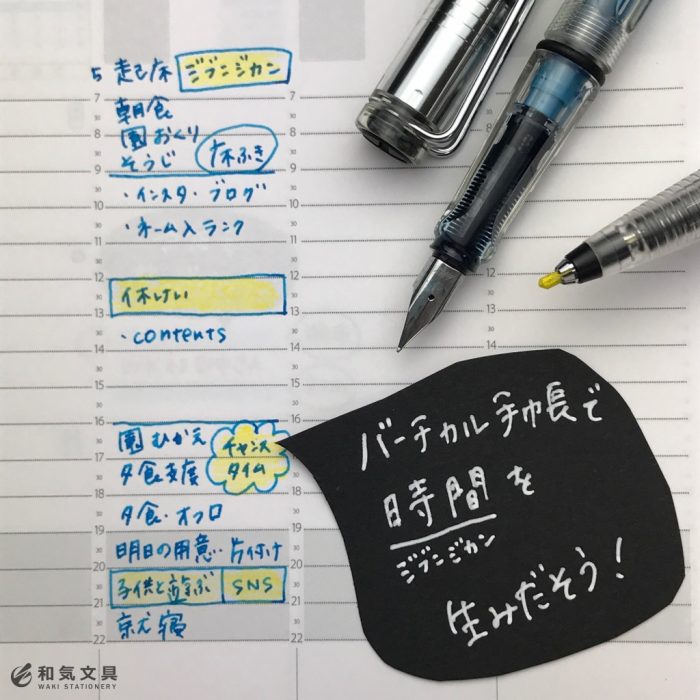 5 起床 ジブンジカン
朝食
園おくり
そうじ 床ふき
・インスタ・ブログ
・ネーム入ランク
休けい
・contents
園むかえ チャンス
夕食支度 タイム
夕食・オフロ
明日の用意・片付け
子供と遊ぶ SNS
就寝
7 30 8 30 9 30 10 30 11 30 12 30 13 30 14 30 15 30 16 30 17 30 18 30 19 30 20 30 21 30 22
バーチカル手帳で
時間を
ジブンジカン
生みだそう!
和気文具
WAKI STATIONERY